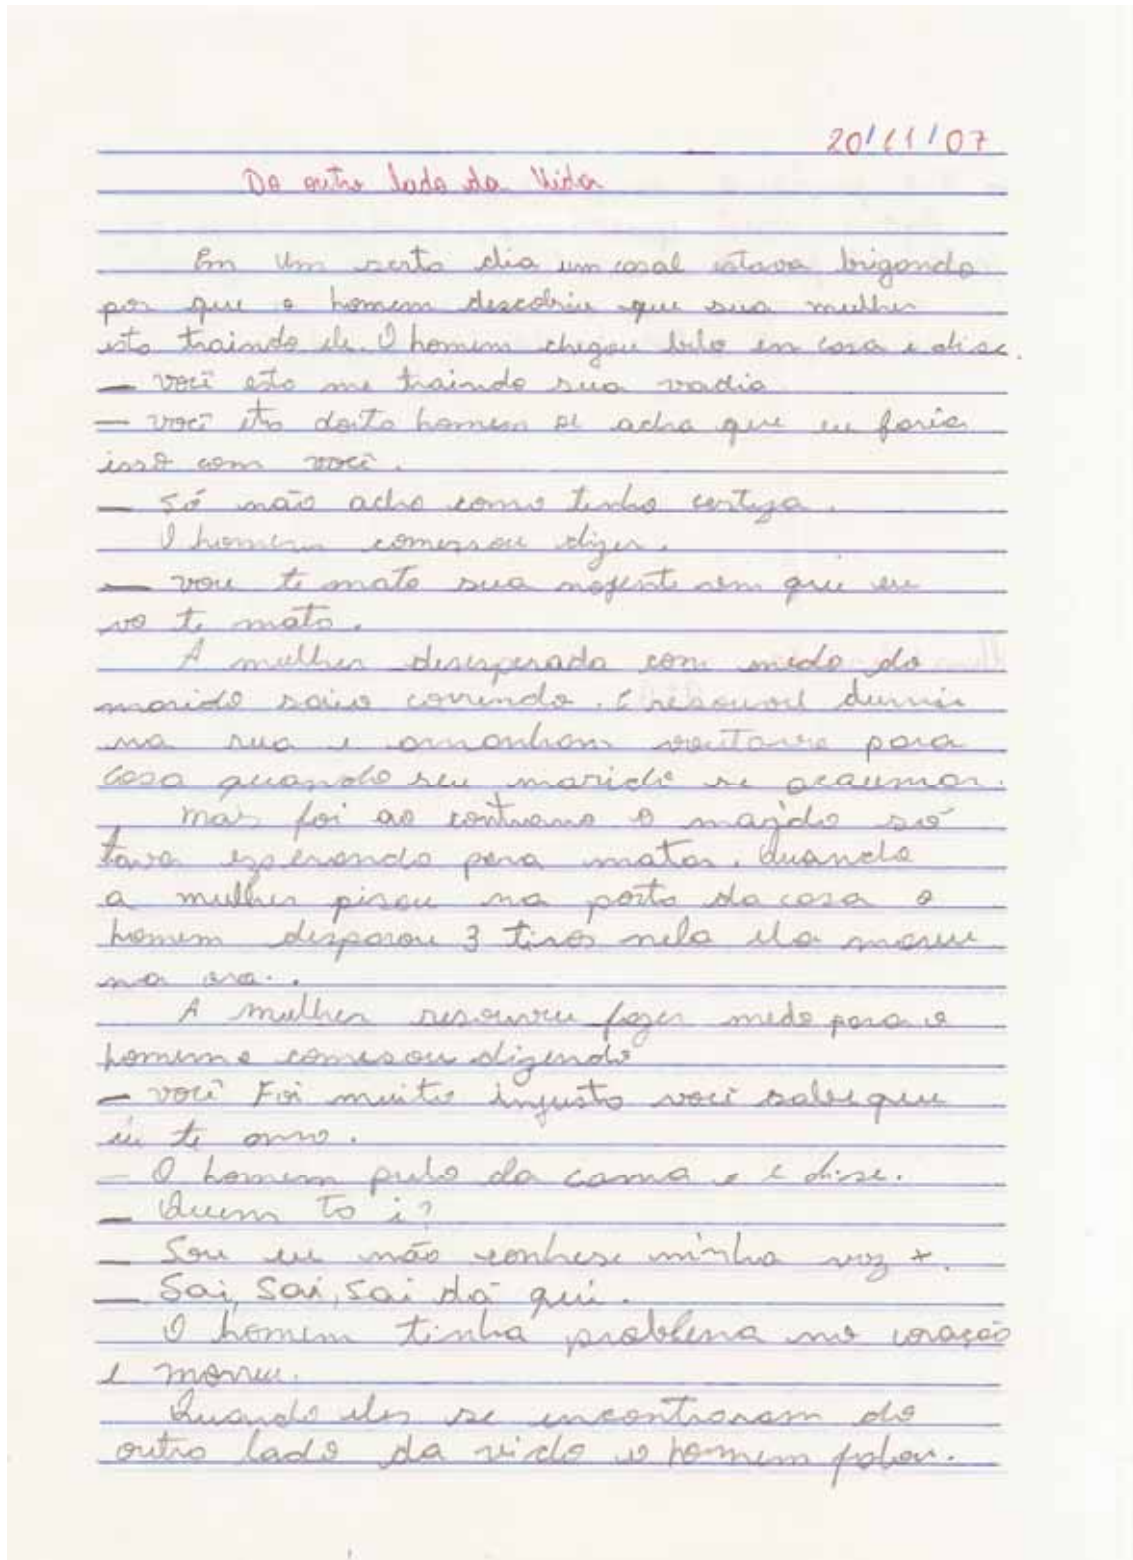 20/11/07
Do outro lado da Vida
Em Um serto dia um casal estava brigando
por que o homem descobriu que sua mulher
esta traindo ele. O homem chegou bebo em casa e disse.
— você esta me traindo sua vadia
— você ta doito homem se acha que eu faria
isso com você.
— Só não acho como tenho certeza.
O homem comessou dizer.
— vou te mato sua nojente vem que eu
vo te mato.
A mulher desesperada com medo do
marido saiu correndo. E resouveu durmir
na rua e amanham voutava para
casa quando seu marido se acaumar.
Mas foi ao contrario o marido só
tava esperando pera matar. Quando
a mulher pisou na porta da casa o
homem disparou 3 tiros nela ela moreu
na ora.
A mulher resouveu fazer medo para o
homem e comesou dizendo
— você Foi muito injusto você sabe que
eu te amo.
— O homem pulo da cama e e dise.
— Quem ta i?
— Sou eu não conhese minha voz +.
— Sai, Sai, Sai da qui.
O homem tinha problema no coração
e morreu.
Quando eles se encontraram do
outro lado da vida o homem falou.